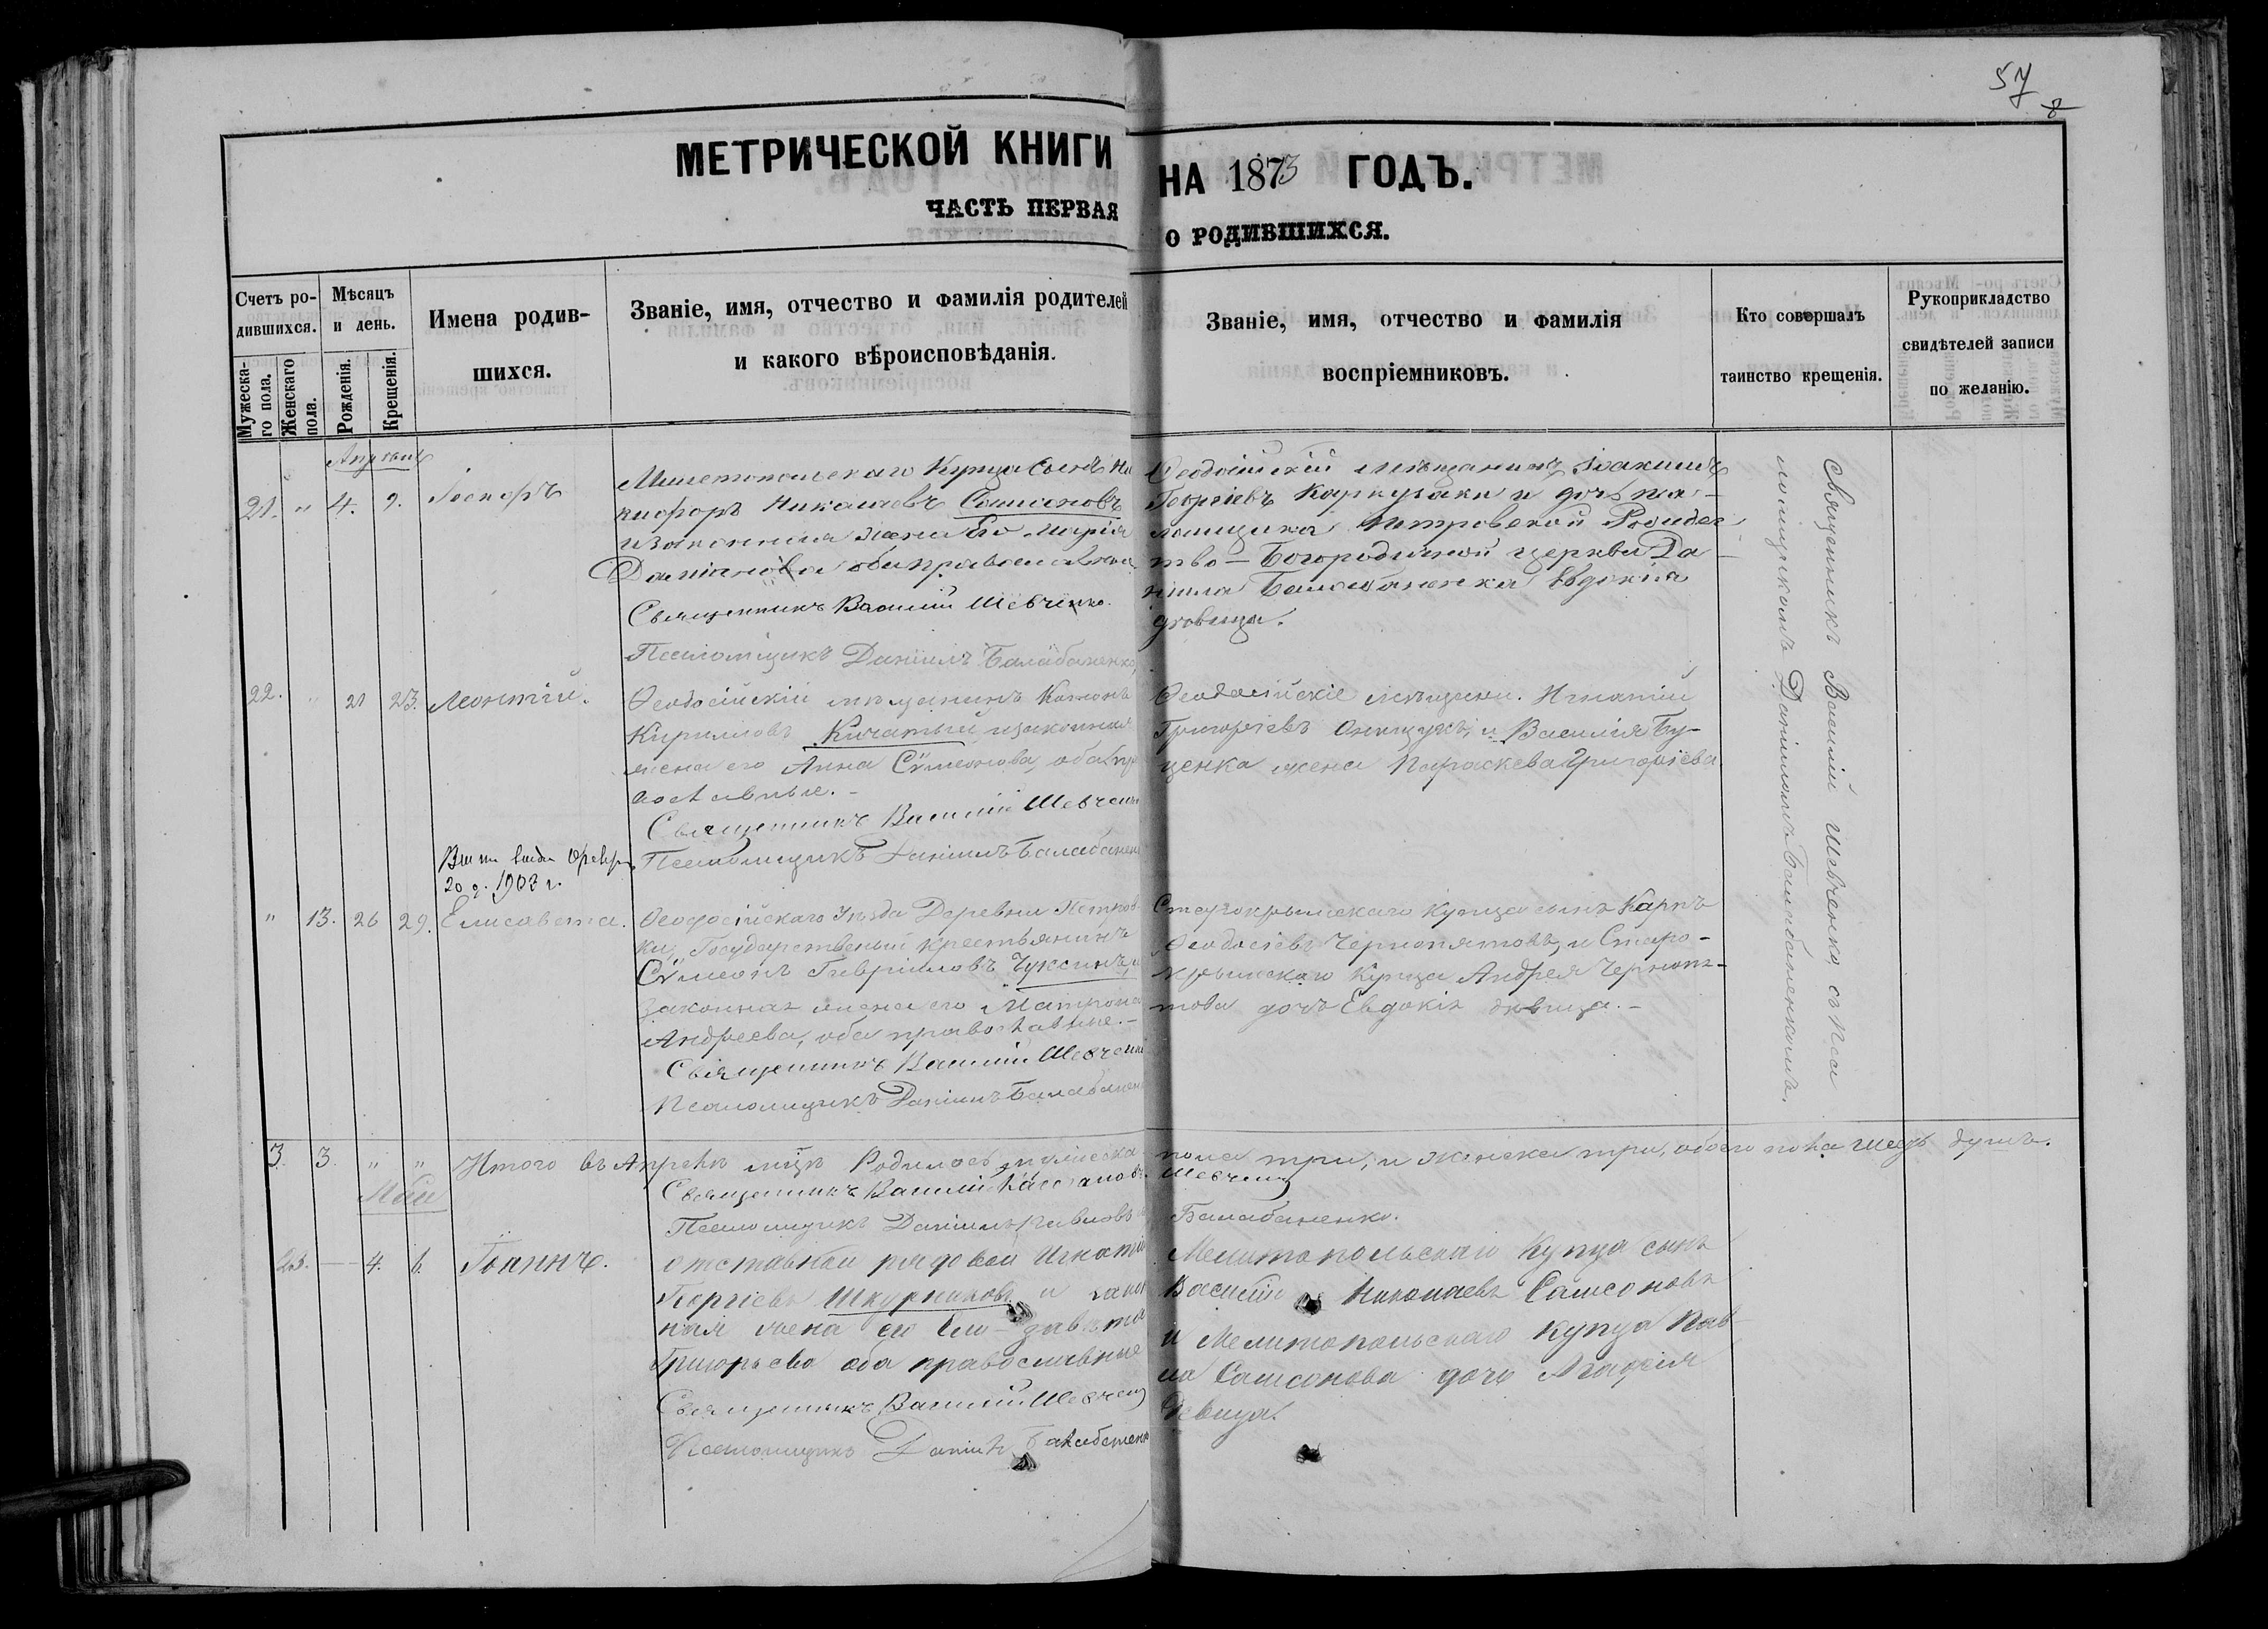 57
8
МЕТРИЧЕСКОЙ КНИГИ НА 1873 ГОДЪ.
ЧАСТЬ ПЕРВАЯ О РОДИВШИХСЯ.
Счетъ ро-
дившихся.
Мужеска-
го пола.
Женскаго
пола.
Мѣсяцъ
и день.
Рожденія.
Крещенія.
Имена родив-
шихся.
Званіе, имя, отчество и фамилія родителей
и какого вѣроисповѣданія.
Званіе, имя, отчество и фамилія
воспріемниковъ.
Кто совершалъ
таинство крещенія.
Рукоприкладство
свидѣтелей записи
по желанію.
21. " 4. 9.
Купца сынъ Ни
кифоръ Николаевъ Самсоновъ
и законная жена Его Марія
оба православные
Священникъ Василій Шевченко.
Псаломщикъ Даніилъ Балабаненко,
Ѳеодосійскій мѣщанинъ Іоакимъ
Георгіевъ и дочь пса-
ломщика Петровской Рождес
тво-Богородичной церкви Да-
ніила Балабаненка Евдокія
дѣвица.
22. " 21 23. Леонтій.
Ѳеодосійскій мѣщанинъ
Кирилловъ Кичатый, и законная
жена его Анна Сѵмеонова, оба пра
вославные.-
Священникъ Василій Шевченко
Псаломщикъ Даніилъ Балабанен
Ѳеодосійскіе мѣщане. Игнатій
Григоріевъ и Василія Бу-
ценка жена Параскева Григоріева
20 г. 1903 г.
" 13. 26 29. Елисавета.
Ѳеодосійскаго Уѣзда Деревни Петров
ки, Государственый крестьянинъ
Сѵмеонъ Гавриловъ Чуксинъ, и
законная жена его Матрона
Андреева, оба православные.-
Священникъ Василій Шевченко
Псаломщикъ Даніилъ Балабанен
Старокрымскаго Купца сынъ Карпъ
Ѳеодосіевъ Чернопятовъ, и Старо-
крымскаго Купца Андрея Чернопя-
това дочь Евдокія дѣвица.-
Священникъ Василій Шевченко съ Пса
ломщикомъ Даніиломъ Балабаненкомъ.
3. 3. " " Итого въ Апрѣлѣ мцѣ Родилось мужеска пола три, и женска три, обоего пола шесть душъ.
Священникъ Василій Шевченко
Май
Псаломщикъ Даніилъ Павловъ Балабаненко.
23. — 4. 6. Іоаннъ.
отставной рядовой Игнатій
Георгіевъ Шкурниковъ и закон
ная жена его Ели-завета
Григорьева оба православные
Священникъ Василій Шевченко
Псаломщикъ Даніилъ Балабаненко
Мелитопольскаго купца сынъ
Василій Николаевъ Самсоновъ
и Мелитопольскаго купца Пав-
ла Самсонова дочь Агафія
девица.